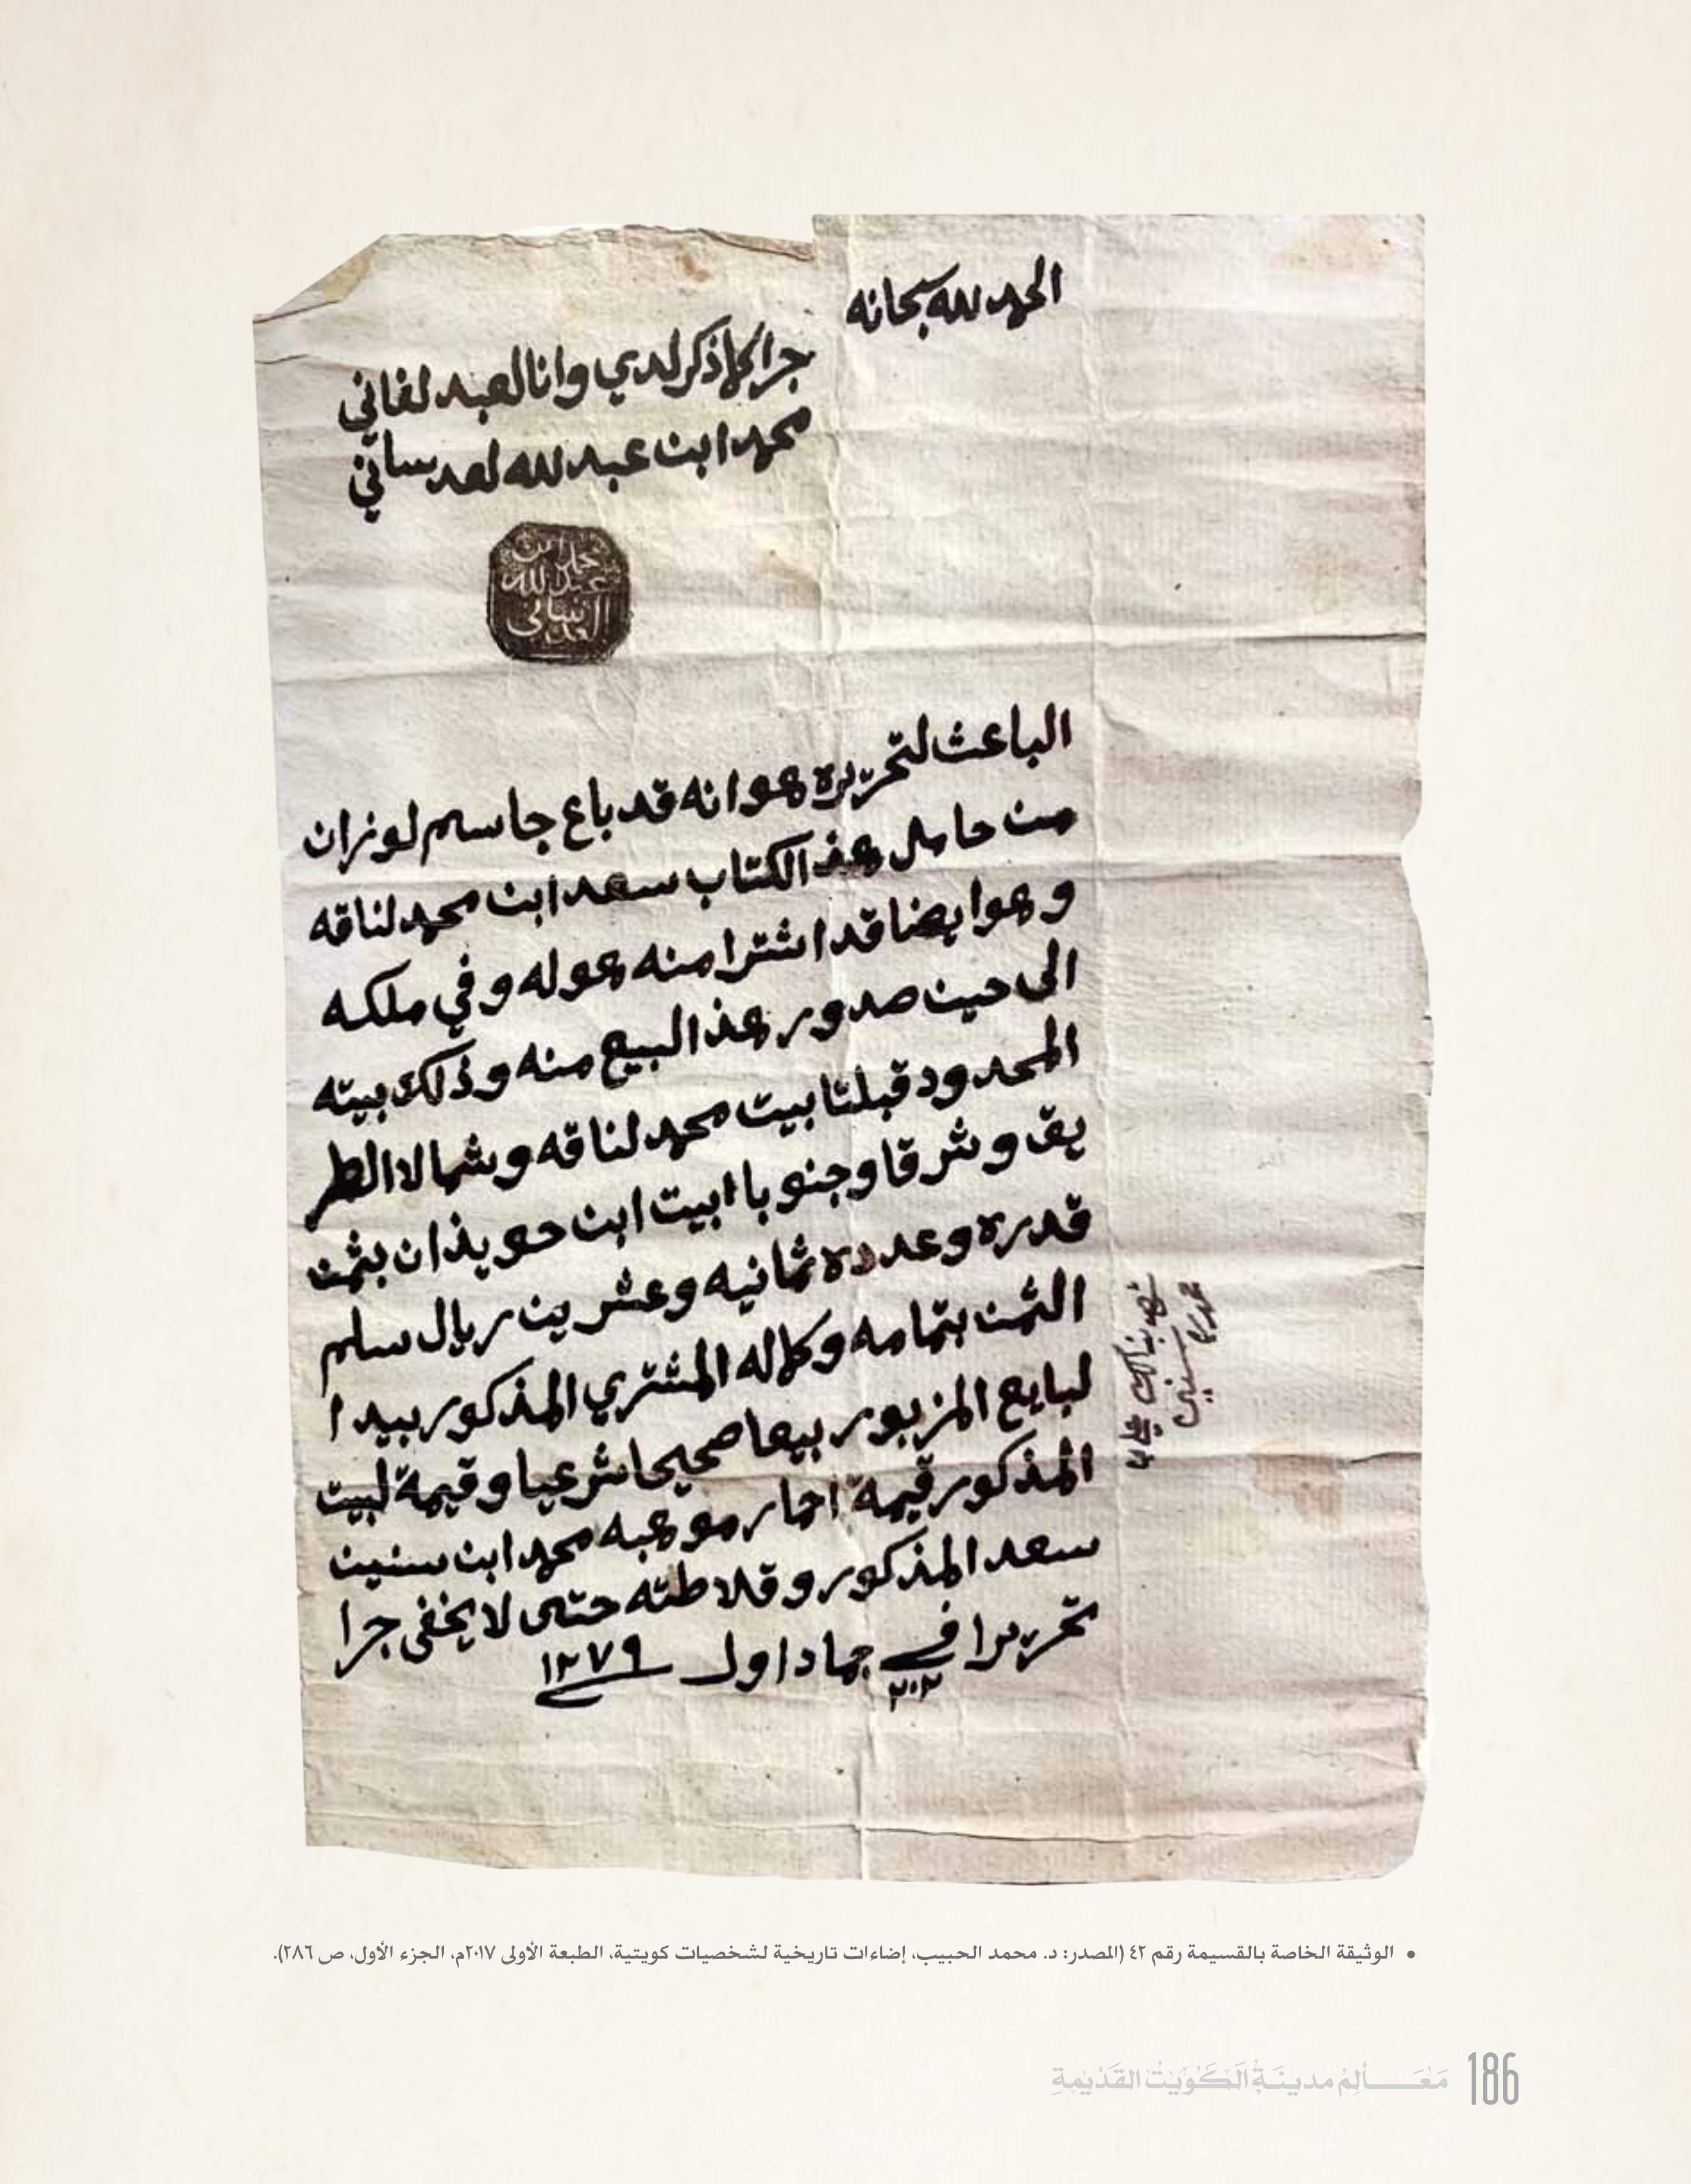 الحمد لله سبحانه
جرا كلما ذكر لدي وانا لعبد لفاني
محمد ابن عبد لله لعدساني
محمد ابن
عبد لله
العدساني
الباعث لتحريره هوا نه قد باع جاسم لوزان
من حامل هذ الكتاب سعد ابن محمد لناقه
وهوا يضا قد اشترا منه هو له وفي ملكه
الى حين صدور هذ البيع منه وذلك بيته
المحدود قبلتا بيت محمد لناقه وشمالا الطر
يق وشرقا وجنوبا ابيت ابن حويذان بثمن
قدره وعدده ثمانيه وعشرين ريال سلم
الثمن بتمامه وكماله المشتري المذكور بيد ا
لبايع المزبور بيعا صحيحا شرعيا وقيمة لبيت
المذكور قيمة احمار موهبه محمد ابن سنين
سعد المذكور و قلاطته حتى لا يخفى جرا
تحريرا في ٢٠٢ جماد اول ١٢٧٩
شهد بذالك علي ا
محمد
سنين
• الوثيقة الخاصة بالقسيمة رقم ٤٢ (المصدر: د. محمد الحبيب، إضاءات تاريخية لشخصيات كويتية، الطبعة الأولى ٢٠١٧م، الجزء الأول، ص ٢٨٦).
186 مَعَـــالِمُ مدينَـةِ الكُوَيْتِ القَدِيْمَةِ